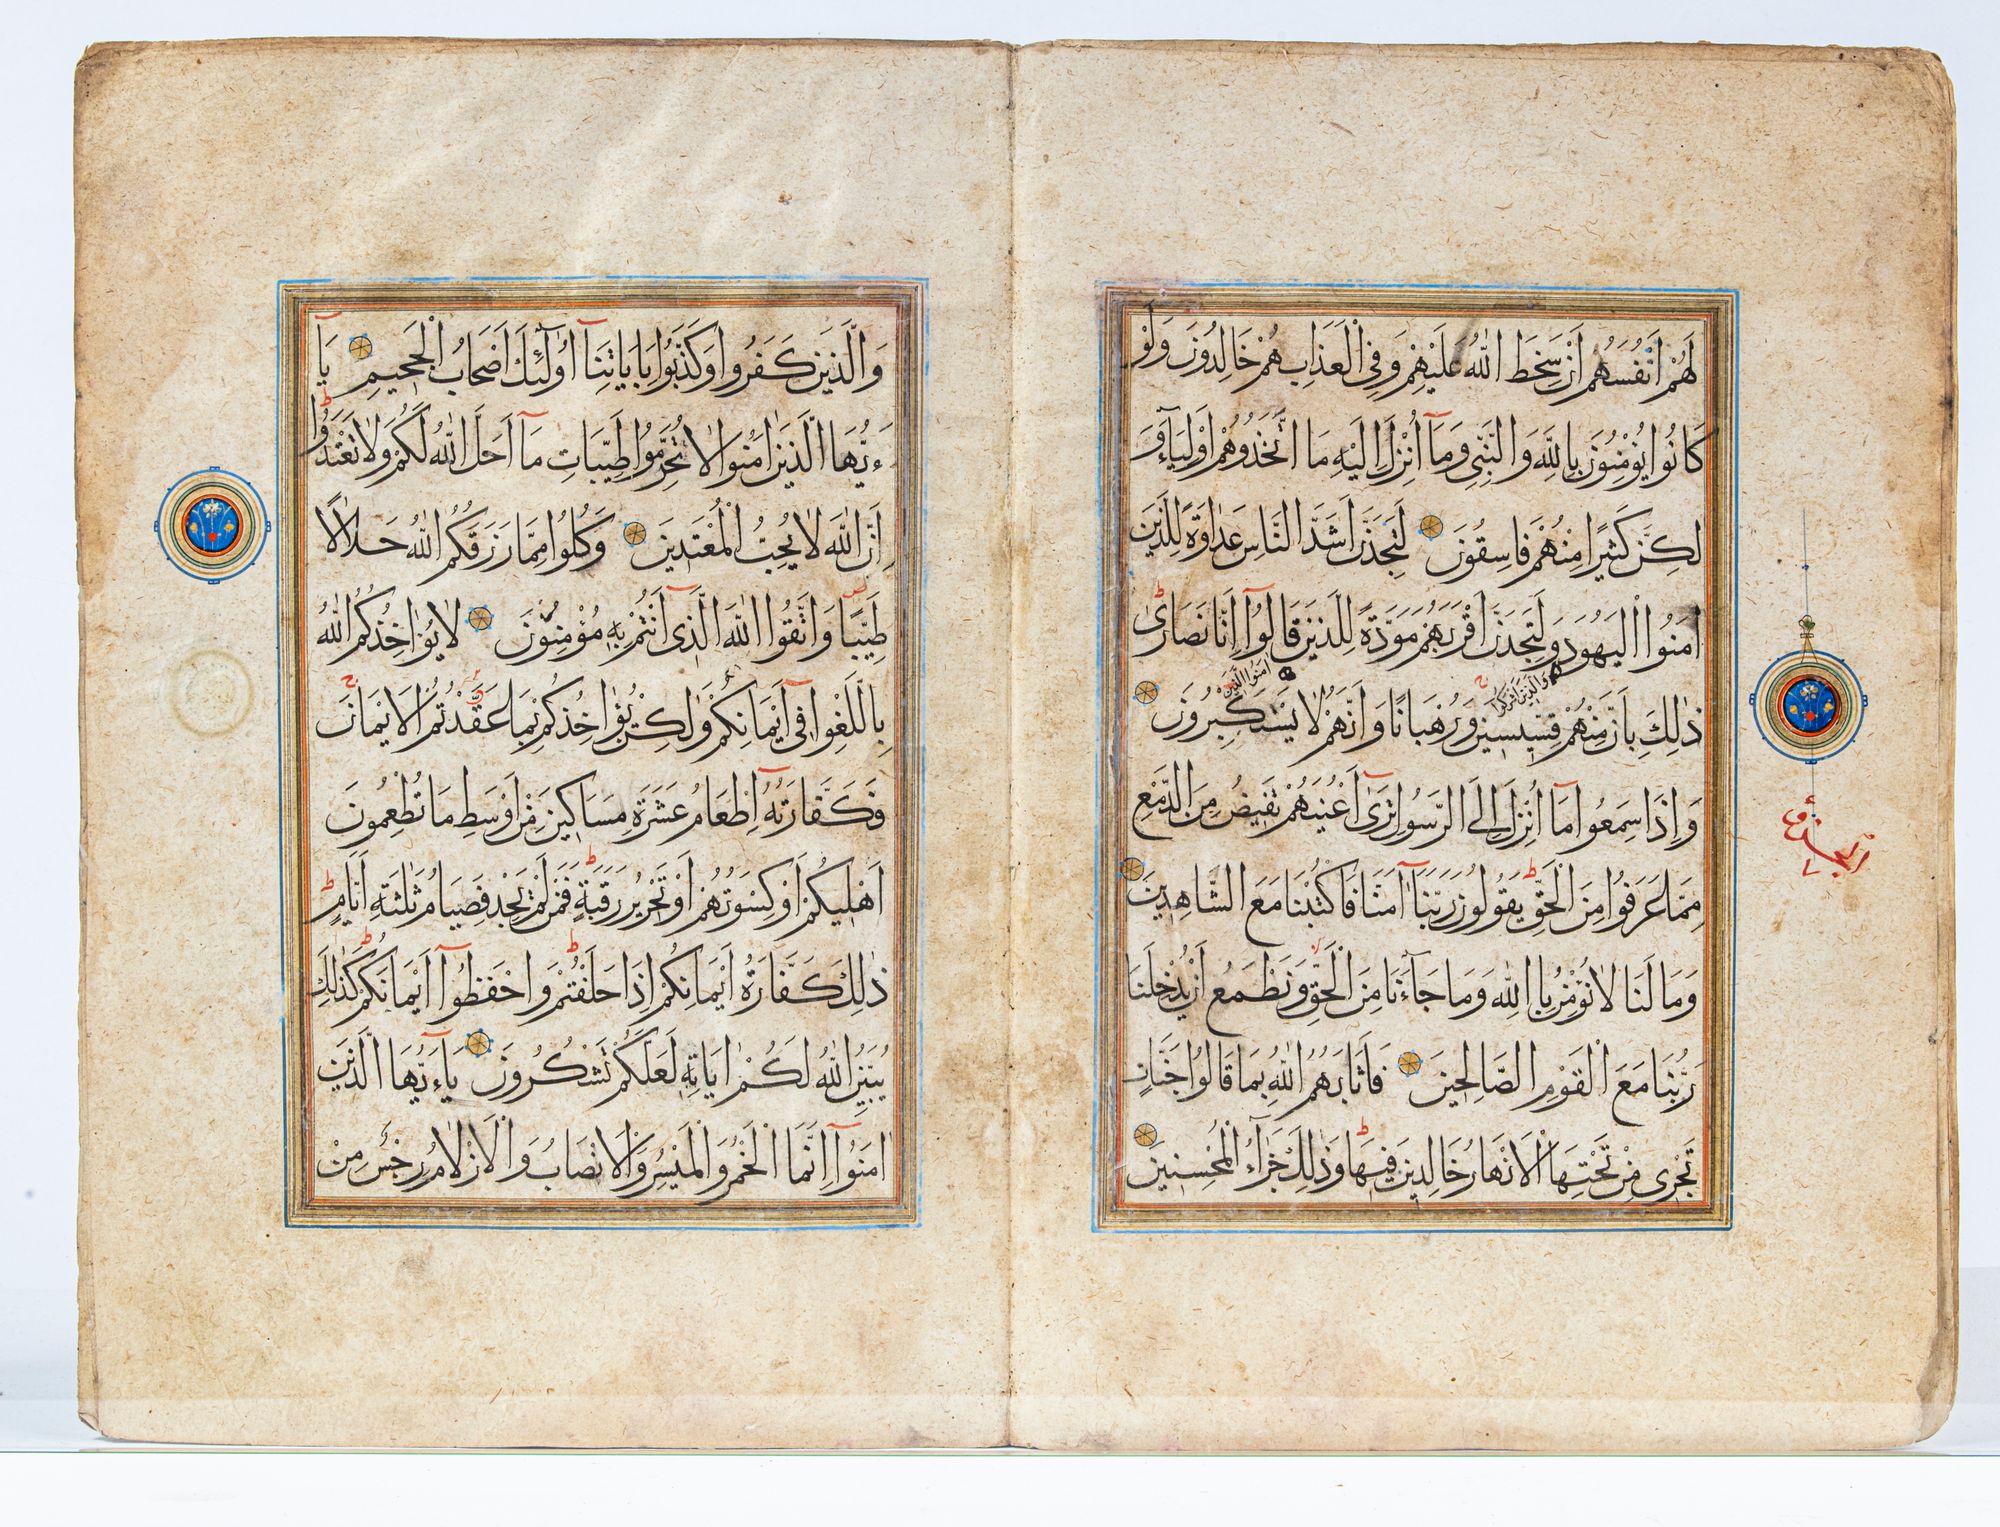 لَهُمْ اَنْفُسُهُمْ اَنْ سَخِطَ اللّٰهُ عَلَيْهِمْ وَفِي الْعَذَابِ هُمْ خَالِدُونَ وَلَوْ
كَانُوا يُؤْمِنُونَ بِاللّٰهِ وَالنَّبِيِّ وَمَآ اُنْزِلَ اِلَيْهِ مَا اتَّخَذُوهُمْ اَوْلِيَآءَ وَ
لٰكِنَّ كَثِيرًا مِنْهُمْ فَاسِقُونَ لَتَجِدَنَّ اَشَدَّ النَّاسِ عَدَاوَةً لِلَّذِينَ
اٰمَنُوا الْيَهُودَ وَلَتَجِدَنَّ اَقْرَبَهُمْ مَوَدَّةً لِلَّذِينَ قَالُوآ اِنَّا نَصَارٰى
وَالَّذِينَ اَشْرَكُوا
اٰمَنُوا الَّذِينَ
ذٰلِكَ بِاَنَّ مِنْهُمْ قِسِّيسِينَ وَرُهْبَانًا وَاَنَّهُمْ لَا يَسْتَكْبِرُونَ
وَاِذَا سَمِعُوا مَآ اُنْزِلَ اِلَى الرَّسُولِ تَرٰىٓ اَعْيُنَهُمْ تَفِيضُ مِنَ الدَّمْعِ
مِمَّا عَرَفُوا مِنَ الْحَقِّ يَقُولُونَ رَبَّنَآ اٰمَنَّا فَاكْتُبْنَا مَعَ الشَّاهِدِينَ
وَمَا لَنَا لَا نُؤْمِنُ بِاللّٰهِ وَمَا جَآءَنَا مِنَ الْحَقِّ وَنَطْمَعُ اَنْ يُدْخِلَنَا
رَبُّنَا مَعَ الْقَوْمِ الصَّالِحِينَ فَاَثَابَهُمُ اللّٰهُ بِمَا قَالُوا جَنَّاتٍ
تَجْرِى مِنْ تَحْتِهَا الْاَنْهَارُ خَالِدِينَ فِيهَا وَذٰلِكَ جَزَآءُ الْمُحْسِنِينَ
وَالَّذِينَ كَفَرُوا وَكَذَّبُوا بِاٰيَاتِنَآ اُولٰٓئِكَ اَصْحَابُ الْجَحِيمِ يَآ
ءَيُّهَا الَّذِينَ اٰمَنُوا لَا تُحَرِّمُوا طَيِّبَاتِ مَآ اَحَلَّ اللّٰهُ لَكُمْ وَلَا تَعْتَدُوا
اِنَّ اللّٰهَ لَا يُحِبُّ الْمُعْتَدِينَ وَكُلُوا مِمَّا رَزَقَكُمُ اللّٰهُ حَلَالًا
طَيِّبًا وَاتَّقُوا اللّٰهَ الَّذِىٓ اَنْتُمْ بِهِ مُؤْمِنُونَ لَا يُؤَاخِذُكُمُ اللّٰهُ
بِاللَّغْوِ فِىٓ اَيْمَانِكُمْ وَلٰكِنْ يُؤَاخِذُكُمْ بِمَا عَقَّدْتُمُ الْاَيْمَانَ
فَكَفَّارَتُهُٓ اِطْعَامُ عَشَرَةِ مَسَاكِينَ مِنْ اَوْسَطِ مَا تُطْعِمُونَ
اَهْلِيكُمْ اَوْ كِسْوَتُهُمْ اَوْ تَحْرِيرُ رَقَبَةٍ فَمَنْ لَمْ يَجِدْ فَصِيَامُ ثَلٰثَةِ اَيَّامٍ
ذٰلِكَ كَفَّارَةُ اَيْمَانِكُمْ اِذَا حَلَفْتُمْ وَاحْفَظُوآ اَيْمَانَكُمْ كَذٰلِكَ
يُبَيِّنُ اللّٰهُ لَكُمْ اٰيَاتِهِ لَعَلَّكُمْ تَشْكُرُونَ يَآءَيُّهَا الَّذِينَ
اٰمَنُوآ اِنَّمَا الْخَمْرُ وَالْمَيْسِرُ وَالْاَنْصَابُ وَالْاَزْلَامُ رِجْسٌ مِنْ